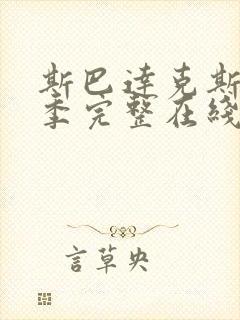 斯巴达克斯
季完整在线
言草央